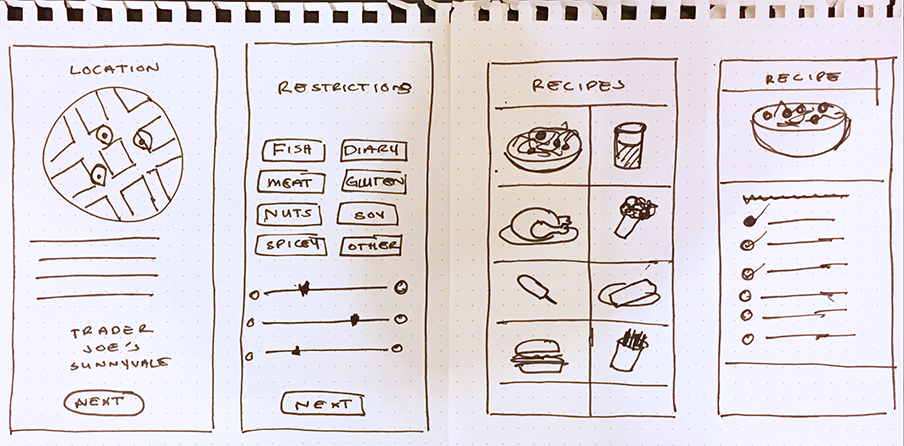 LOCATION
TRADER
JOE'S
SUNNYVALE
NEXT
RESTRICTIONS
FISH
DIARY
MEAT
GLUTEN
NUTS
SOY
SPICEY
OTHER
NEXT
RECIPES
RECIPE